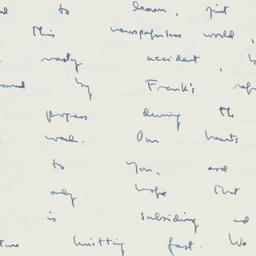 to learn, just
this newspaperless world,
nasty accident,
by Frank's
progress during the
week. Our hearts
to you, and
only hope that
is subsiding and
knitting fast. We